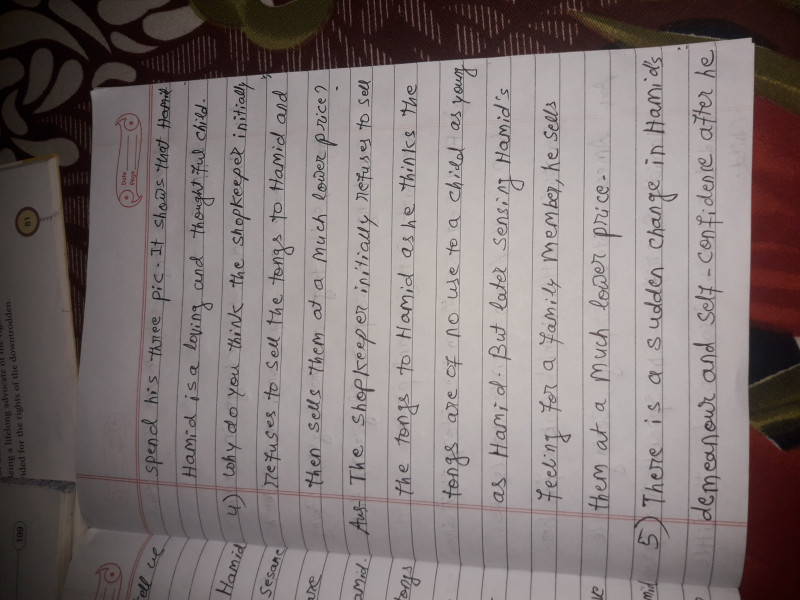 Date
Page
spend his three pic. It shows that Hamid
Hamid is a loving and thoughtful child.
4) Why do you think the shopkeeper initially
refuses to sell the tongs to Hamid and
then sells them at a much lower price?
Ans- The shopkeeper initially refuses to sell
the tongs to Hamid as he thinks the
tongs are of no use to a child as young
as Hamid. But later sensing Hamid's
feeling for a family member, he sells
them at a much lower price.
5) There is a sudden change in Hamid's
demeanour and self-confidence after he
tell we
Hamid
Sesane
are
amid.
tongs
81
being a lifelong advocate of the
ded for the rights of the downtrodden
109